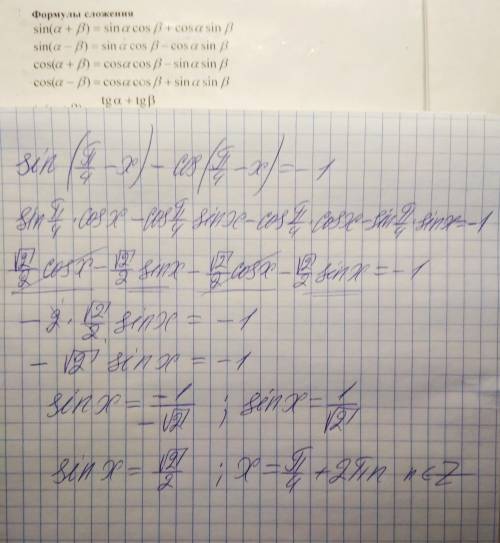 Формулы сложения
sin(α + β) = sin α cos β + cos α sin β
sin(α − β) = sin α cos β − cos α sin β
cos(α + β) = cos α cos β − sin α sin β
cos(α − β) = cos α cos β + sin α sin β
tg α + tg β
sin(π/4 − x) − cos(π/4 − x) = −1
sin π/4 · cos x − cos π/4 sin x − cos π/4 · cos x − sin π/4 sin x = −1
√2/2 cos x − √2/2 sin x − √2/2 cos x − √2/2 sin x = −1
− 2 · √2/2 sin x = −1
− √2 sin x = −1
sin x = −1/−√2 ; sin x = 1/√2
sin x = √2/2 ; x = π/4 + 2πn n ∈ Z